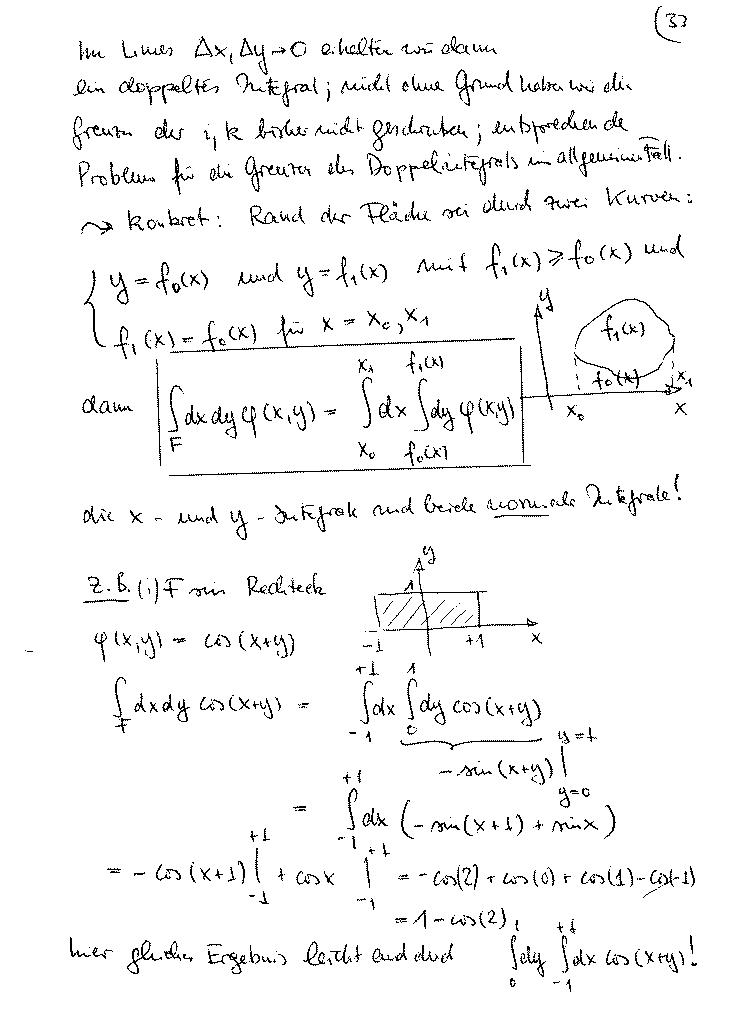 (33
Im Limes Δx, Δy → 0 erhalten wir dann
ein doppeltes Integral; nicht ohne Grund haben wir die
Grenzen der i, k bisher nicht geschrieben; entsprechende
Probleme für die Grenzen des Doppelintegrals im allgemeinen Fall.
⇝ konkret: Rand der Fläche sei durch zwei Kurven:
{ y = f₀(x) und y = f₁(x) mit f₁(x) ⩾ f₀(x) und
f₁(x) = f₀(x) für x = x₀, x₁
y f₁(x) f₀(x) x₀ x₁ x
dann ∫_F dx dy φ(x,y) = ∫_{x₀}^{x₁} dx ∫_{f₀(x)}^{f₁(x)} dy φ(x,y)
die x- und y-Integrale sind beide normale Integrale!
z.B. (i) F sei Rechteck
y 1 -1 +1 x
φ(x,y) = cos(x+y)
∫_F dx dy cos(x+y) = ∫_{-1}^{+1} dx ∫_0^1 dy cos(x+y)
- sin(x+y) |_{y=0}^{y=1}
= ∫_{-1}^{+1} dx (- sin(x+1) + sin x)
= - cos(x+1) |_{-1}^{+1} + cos x |_{-1}^{+1} = - cos(2) + cos(0) + cos(1) - cos(-1)
= 1 - cos(2)
hier gleiches Ergebnis leicht auch durch ∫_0^1 dy ∫_{-1}^{+1} dx cos(x+y)!